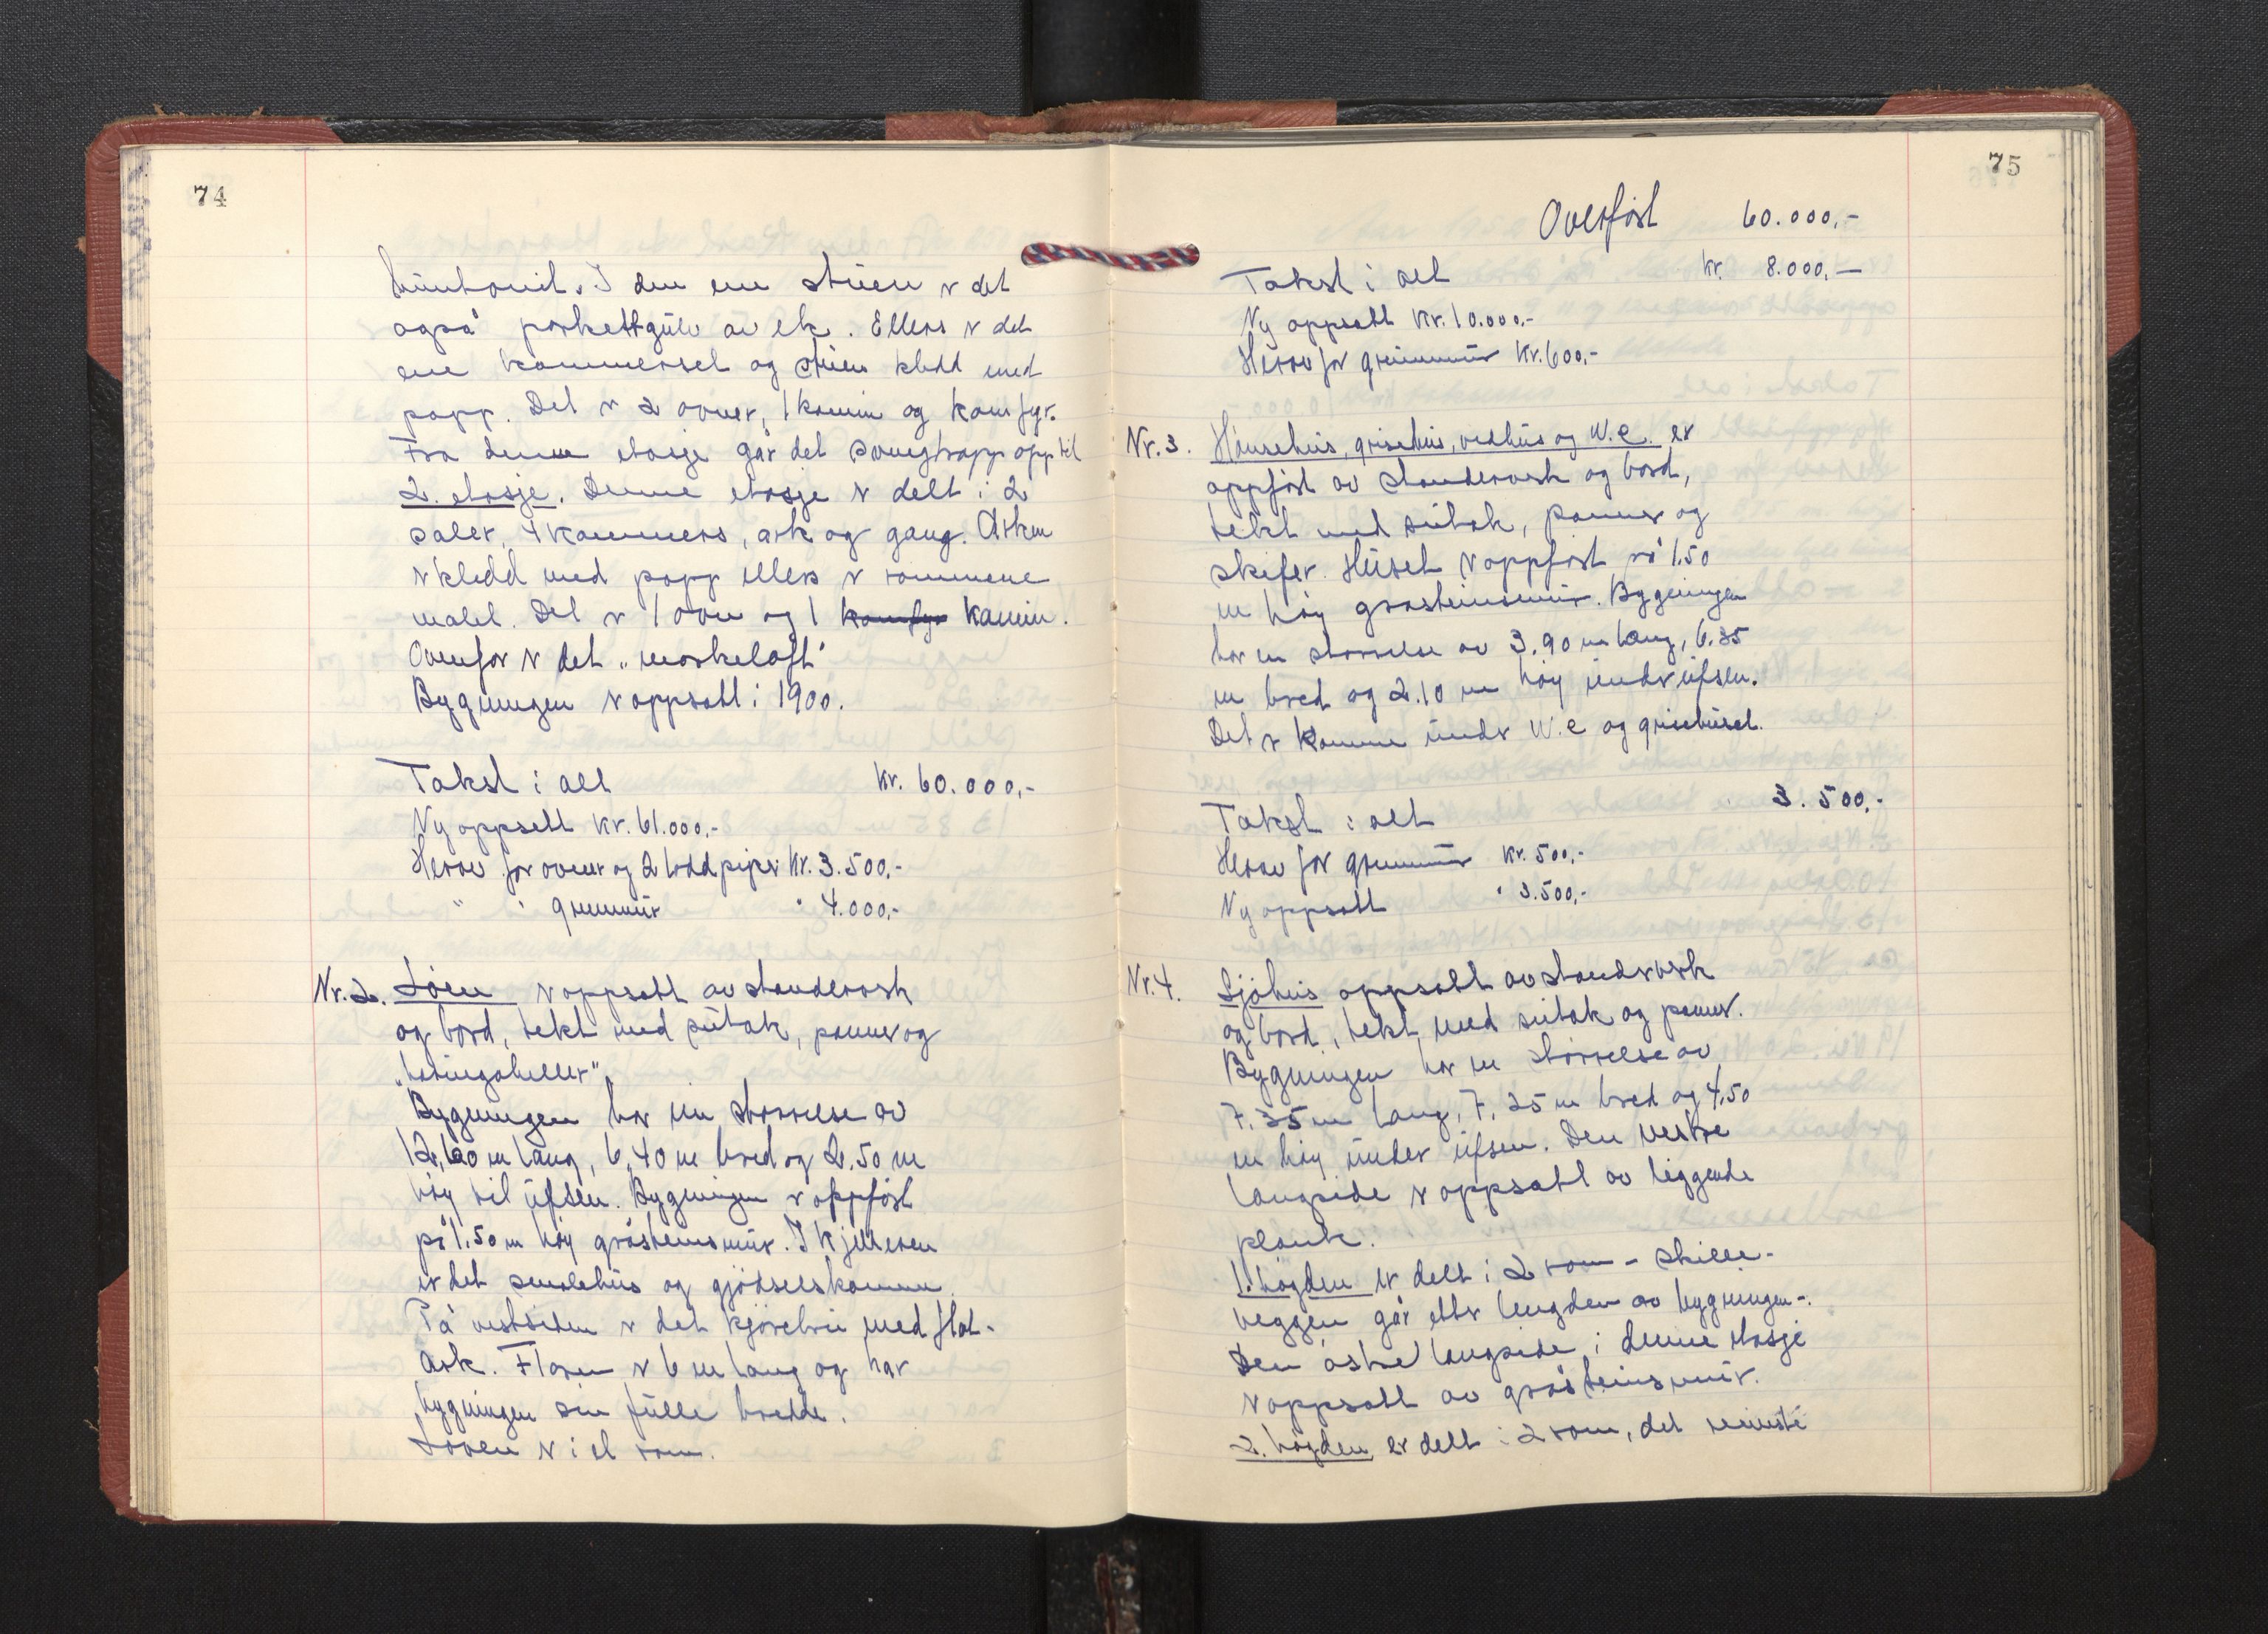 74
huntonit. I den ene stuen er det
også parkettgulv av ek. Ellers er det
ene kammerset og stuen kledd med
papp. Det er 2 ovner, 1 kamin og komfyr.
Fra denne etasje går det svingtrapp opp til
2. etasje. Denne etasje er delt i 2
saler, 4 kammers, ark og gang. Arken
er kledd med papp ellers er rommene
malt. Det er 1 ovn og 1 komfyr kamin.
Ovenfor er det „mørkeloft"
Bygningen er oppsatt i 1900.
Takst i alt kr. 60.000,-
Ny oppsatt kr. 61.000,-
Herav for ovner og 2 loddpiper kr. 3.500,-
" " grunnmur " 4.000,-
Nr. 2. Løen er oppsatt av standerverk
og bord, tekt med sutak, panner og
„haringaheller".
Bygningen har en størrelse av
12,60 m lang, 6,40 m bred og 2,50 m
høy til ufsen. Bygningen er oppført
på 1,50 m høy gråsteinsmur. I kjelleren
er det smalehus og gjødselskammer.
På vestsiden er det kjørebru med flat-
ark. Floren er 6 m lang og har
bygningen sin fulle bredde.
Løen er i et rom.
75
Overført 60.000,-
Takst i alt kr. 8.000,-
Ny oppsatt kr. 10.000,-
Herav for grunnmur kr. 600,-
Nr. 3. Hønsehus, grisehus, vedhus og W.c. er
oppført av standerverk og bord,
tekt med sutak, panner og
skifer. Huset er oppført på 1,50
m høy gråsteinsmur. Bygningen
har en størrelse av 3.90 m lang, 6.35
m bred og 2.10 m høy under ufsen.
Det er kumme under W.c og grisehuset.
Takst i alt 3.500,-
Herav for grunnmur kr. 500,-
Ny oppsatt " 3.500,-
Nr. 4. Sjøhus oppsatt av standverk
og bord, tekt med sutak og panner.
Bygningen har en størrelse av
7,35 m lang, 7,25 m bred og 4,50
m høy under ufsen. Den vestre
langside er oppsatt av liggende
plank.
1. høgden er delt i 2 rom - skille-
veggen går etter lengden av bygningen -.
Den østre langside i denne etasje
er oppsatt av gråsteinsmur.
2. høgden er delt i 2 rom, det minste